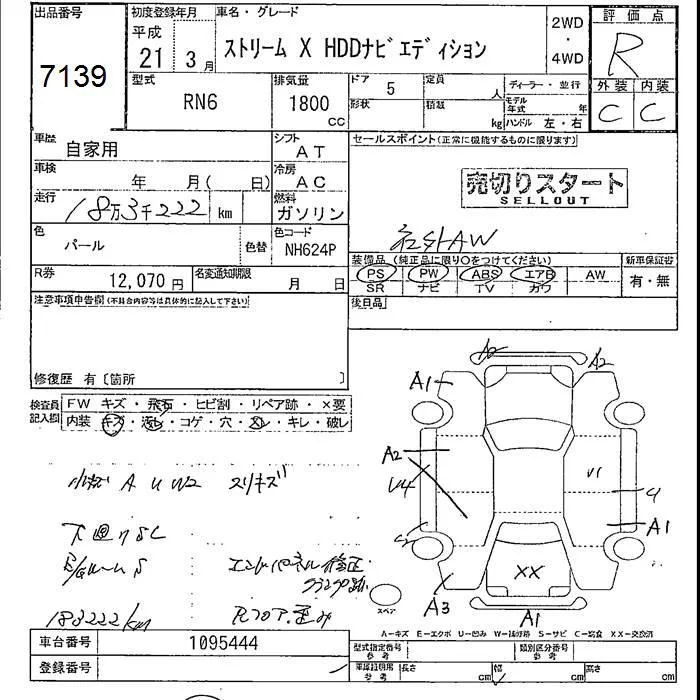 出品番号
7139
初度登録年月
平成
21 3月
車名・グレード
ストリーム X HDDナビエディション
2WD
・
4WD
評価点
R
外装 内装
C C
型式
RN6
排気量
1800
CC
ドア
5
定員
人
形状
積載
kg
ディーラー・並行
モデル
年式
年
ハンドル 左・右
車歴
自家用
シフト
AT
車検
年 月( 日)
冷房
AC
走行
18万3千222 km
燃料
ガソリン
色
パール
色替
色コード
NH624P
R券
12,070円
名変通知期限
月 日
セールスポイント(正常に機能するものに限ります)
売切りスタート
SELLOUT
社外AW
装備品(純正品に限り○をつけてください)
新車保証書
PS PW ABS エアB AW
有・無
SR ナビ TV カワ
後日品
注意事項申告欄(不具合内容等は具体的に記入して下さい)
修復歴 有〔箇所 〕
検査員
記入欄
FW キズ・飛石・ヒビ割・リペア跡・×要
内装 キズ・汚れ・コゲ・穴・スレ・キレ・破レ
小キズ A U W2 スリキズ
下廻り S C
エンドパネル修正・
クランプ跡
183222km
Rフロア歪み
A2 A2
A1
A2
U4
U1
A1
XX
A3
A1
スペア
A-キズ E-エクボ U-凹み W-補修跡 S-サビ C-腐食 XX-交換済
車台番号
1095444
登録番号
型式指定番号
参考
類別区分番号
参考
車庫証明用
参考
長さ
cm
幅
cm
高さ
cm